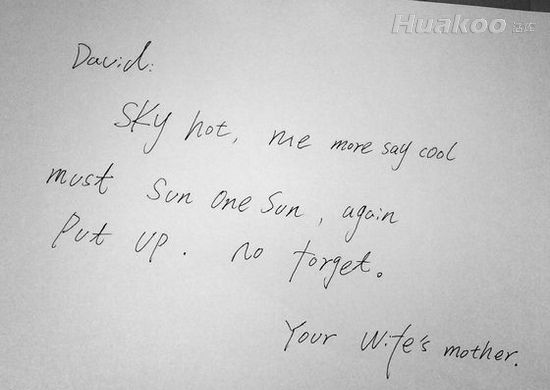 Huakoo
David:
Sky hot, me more say cool
must Sun One Sun, again
Put up. no forget.
Your Wife's mother.